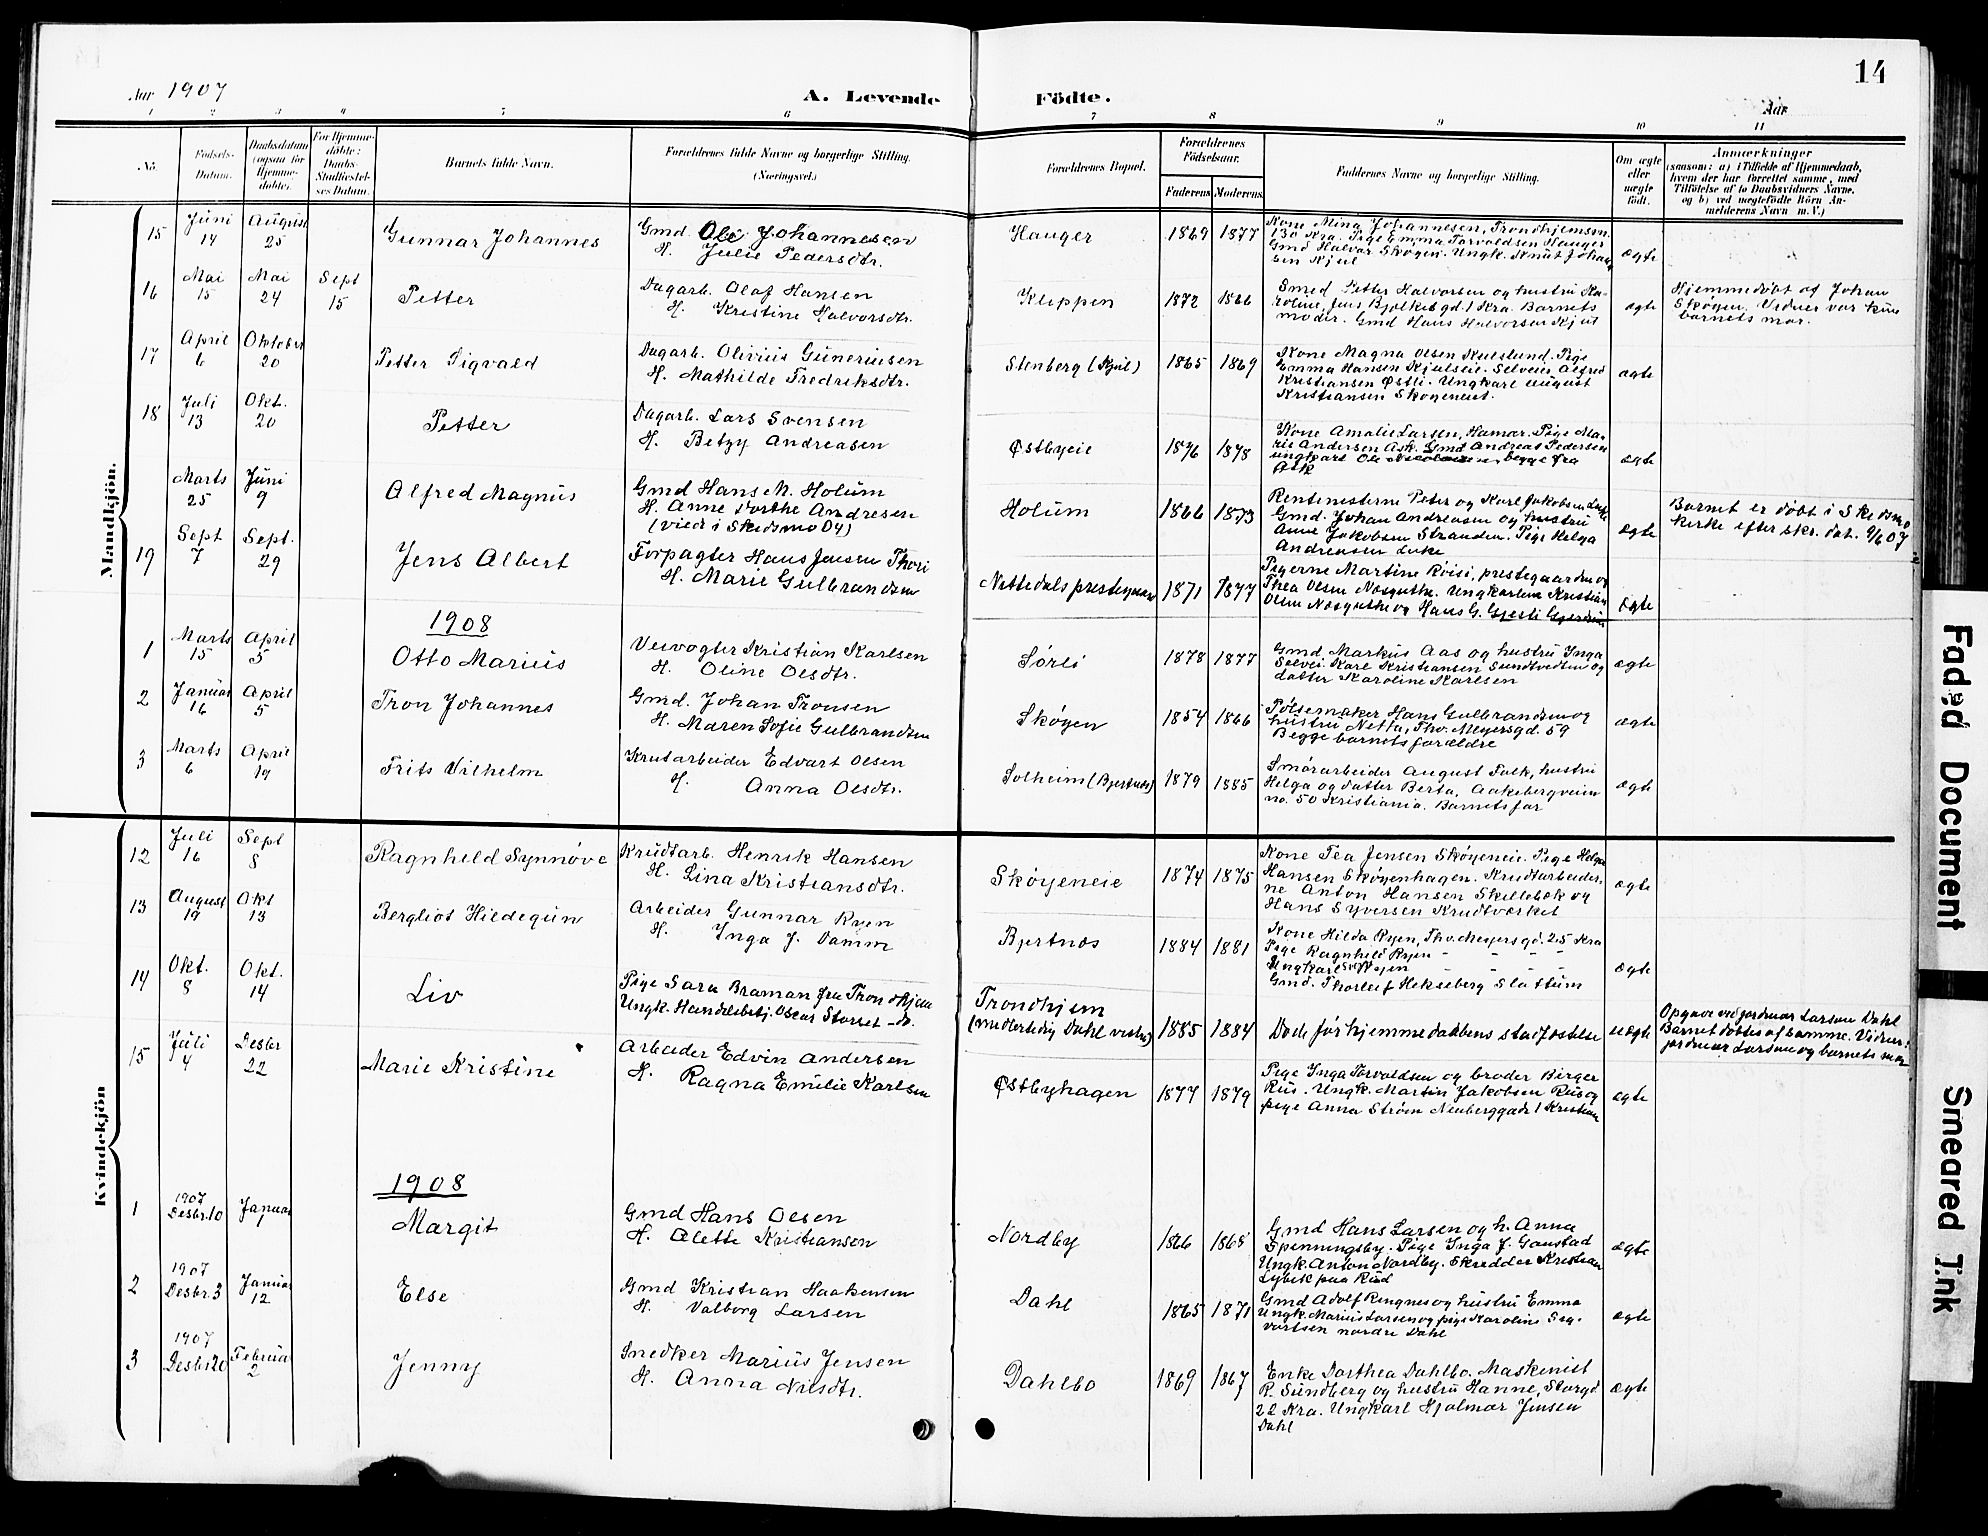 14
Aar 1907
A. Levende Födte.
Aar
1 2 3 4 5 6 7 8 9 10 11
No.
Födsels-
Datum.
Daabsdatum
(ogsaa for
Hjemme-
döbte).
For Hjemme-
döbte:
Daabs-
Stadfæstel-
ses Datum.
Barnets fulde Navn.
Forældrenes fulde Navne og borgerlige Stilling.
(Næringsvei.)
Forældrenes Bopæl.
Forældrenes
Födselsaar.
Faderens Moderens
Faddernes Navne og borgerlige Stilling.
Om ægte
eller
uægte
født.
Anmærkninger
(saasom: a) i Tilfælde af Hjemmedaab,
hvem der har forrettet samme, med
Tilföielse af to Daabsvidners Navne,
og b) ved uægtefödte Börn An-
melderens Navn m. V.)
Mandkjön.
15 Juni 14 August 25 Gunnar Johannes
Gmd. Ole Johannesen
H. Julie Pedersdtr.
Hauger 1869 1877
Kone Mina Johannesen, Trondhjemsvn.
130 Kra. Pige Emma Torvaldsen Hauger
Gmd Halvor Skøgen. Ungk. Knut Johan
sen Kjul
ægte
16 Mai 15 Mai 24 Sept 15 Petter
Dagarb. Olaf Hansen
H. Kristine Halvorsdtr.
Kleppen 1872 1866
Smed Petter Halvorsen og hustru Ka-
roline Jens Bjelkes gd. 1 Kra. Barnets
moder. Gmd Hans Halvorsen Kjul
ægte
Hjemmedøbt af Johan
Skøyen. Vidner var kun
barnets mor.
17 April 6 Oktober 20 Petter Sigvald
Dagarb. Olivius Guneriusen
H. Mathilde Fredriksdtr.
Stenberg (Kjul) 1865 1869
Kone Magna Olsen Kulslund. Pige
Emma Hansen Kjulseie. Selveier Alfred
Kristiansen Østli. Ungkarl August
Kristiansen Skøyeneie.
ægte
18 Juli 13 Okt. 20 Petter
Dagarb. Lars Svensen
H. Betzy Andreasen
Østbyeie 1876 1878
Kone Amalie Larsen, Hamar. Pige Ma-
rie Andersen Ask. Gmd Andreas Pedersen
ungkarl Ole begge fra
Ask
ægte
Marts 25 Juni 9 Alfred Magnus
Gmd Hans M. Holum
H. Anne Dorthe Andresen
(viet i Skedsmo 04)
Holum 1866 1873
Rentenisterne Peter og Karl Jakobsen
Gmd. Johan Andreasen og hustru
Anne Jakobsen Stranden. Pige Helga
Andreasen
ægte
Barnet er døbt i Skedsmo
kirke efter skr. dat. 9/6 07
19 Sept 7 Sept. 29 Jens Albert
Forpagter Hans Jensen Thori
H. Marie Gulbrandsen
Nittedals prestegaard 1871 1877
Pigerne Martine Röisi, prestegaarden og
Thea Olsen Nosguthe. Ungkarlene Kristian
Olsen Nosguthe og Hans G. Gjesti Gjerdrum
ægte
1908
1 Marts 15 April 5 Otto Marius
Veivogter Kristian Karlsen
H. Oline Olsdtr.
Sørli 1878 1877
Gmd Markus Aas og hustru Inga
Selvei. Karl Kristiansen Sundtvedten og
datter Karoline Karlsen
ægte
2 Januar 16 April 5 Tron Johannes
Gmd. Johan Tronsen
H. Maren Sofie Gulbrandsen
Skøyen 1854 1866
Pølsemaker Hans Gulbrandsen og
hustru Netta, Thv. Meyersgd. 59
Begge barnets forældre
ægte
3 Marts 6 April 19 Frits Vilhelm
Krutarbeider Edvart Olsen
H. Anna Olsdtr.
Solheim (Bjertnes) 1879 1885
Smörarbeider August Falk, hustru
Helga og datter Berta, Aakebergveien
no. 50 Kristiania. Barnets far
ægte
Kvindekjön
12 Juli 16 Sept 8 Ragnhild Synnöve
Krudtarb. Henrik Hansen
H. Lina Kristiansdtr.
Skøyeneie 1874 1875
Kone Tea Jensen Skøyeneie. Pige Helga
Hansen Skøyenhagen. Krudtarbeider-
ne Anton Hansen Skillebæk og
Hans Syversen Krudtværket
ægte
13 August 19 Okt 13 Bergliot Hildegun
Arbeider Gunnar Ryen
H. Inga J. Damm
Bjertnæs 1884 1881
Kone Hilda Ryen, Thv. Meyersgd. 25 Kra
Pige Ragnhild Ryen - - - -
Ungkarl Ryen - - - -
Gmd. Thorleif Hekseberg Slattum
ægte
14 Okt. 8 Okt. 14 Liv
Pige Sara Braman fra Trondhjem
Ungk. Handelsbetj. Oscar Storset - do.
Trondhjem
(midlertidig Dahl vestre) 1885 1884
Døde før hjemmedaabens stadfæstelse
uægte
Opgave ved jordmor Larsen Dahl
Barnet døbtes af samme. Vidner:
jordmor Larsen og barnets mor
15 Juli 4 Desbr 22 Marie Kristine
Arbeider Edvin Andersen
H. Ragna Emilie Karlsen
Østbyhagen 1877 1879
Pige Inga Torvaldsen og broder Birger
Rus. Ungk. Martin Jakobsen Rus og
pige Anna Strøm Neuberggade 1 Kristian
ægte
1908
1 1907 Desbr. 10 Januar 1 Margit
Gmd Hans Olsen
H. Alette Kristiansen
Nordby 1866 1865
Gmd Hans Larsen og h. Anna
Spenningsby. Pige Inga J. Gaustad
Ungk. Anton Nordby. Skredder Kristian
Lybek paa Rud
ægte
2 1907 Desbr. 3 Januar 12 Else
Gmd Kristian Haakensen
H. Valborg Larsen
Dahl 1865 1871
Gmd Adolf Ringnes og hustru Emma
Ungk. Marius Larsen og pige Karoline Sig-
vartsen nordre Dahl
ægte
3 1907 Desbr 20 Februar 2 Jenny
Snedker Marius Jensen
H. Anna Nilsdtr.
Dahlbo 1869 1867
Enke Dorthea Dahlbo. Maskinist
R. Sundberg og hustru Hanne, Storgd.
22 Kra. Ungkarl Hjalmar Jensen
Dahl
ægte
Faded Document
Smeared Ink